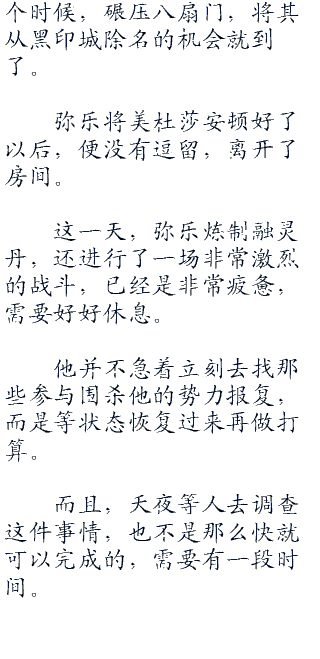 个时候，碾压八扇门，将其
从黑印城除名的机会就到
了。
弥乐将美杜莎安顿好了
以后，便没有逗留，离开了
房间。
这一天，弥乐炼制融灵
丹，还进行了一场非常激烈
的战斗，已经是非常疲惫，
需要好好休息。
他并不急着立刻去找那
些参与围杀他的势力报复，
而是等状态恢复过来再做打
算。
而且，天夜等人去调查
这件事情，也不是那么快就
可以完成的，需要有一段时
间。